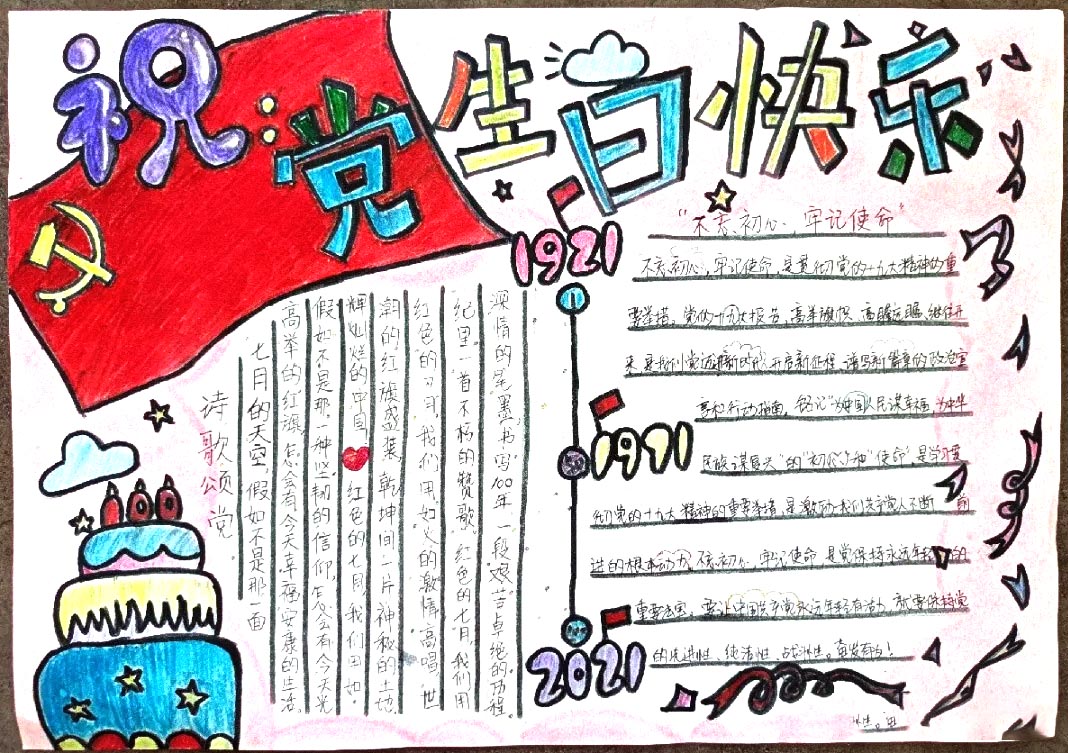 祝党生日快乐
1921
1971
2021
100
诗歌颂党
七月的天空,假如不是那一面
高举的红旗,怎会有今天幸福安康的生活。
假如不是那一种坚韧的信仰,怎会有今天光
辉灿烂的中国 红色的七月 我们因如
潮的红旗盛装,乾坤间一片神秘的土地,
红色的 我们用如火的激情高唱,世
纪里一首不朽的赞歌 红色的七月 我们用
深情的笔墨,书写100年一段艰苦卓绝的历程。
“不忘初心,牢记使命”
不忘初心,牢记使命,是贯彻党的十九大精神的重
要举措。党的十九大报告,高举旗帜、高瞻远瞩、继往开
来 新时代,开启新征程、谱写新篇章的政治宣
言和行动指南,铭记“为中国人民谋幸福,为中华
民族谋复兴”的“初心”和“使命”是学习贯
彻党的十九大精神的重要举措,是激励我们共产党人不断前
进的根本动力,不忘初心,牢记使命,是党保持永远年轻的
重要法宝。要让中国共产党永远年轻有活力,就要保持党
的先进性、纯洁性、战斗性。奋发有为!